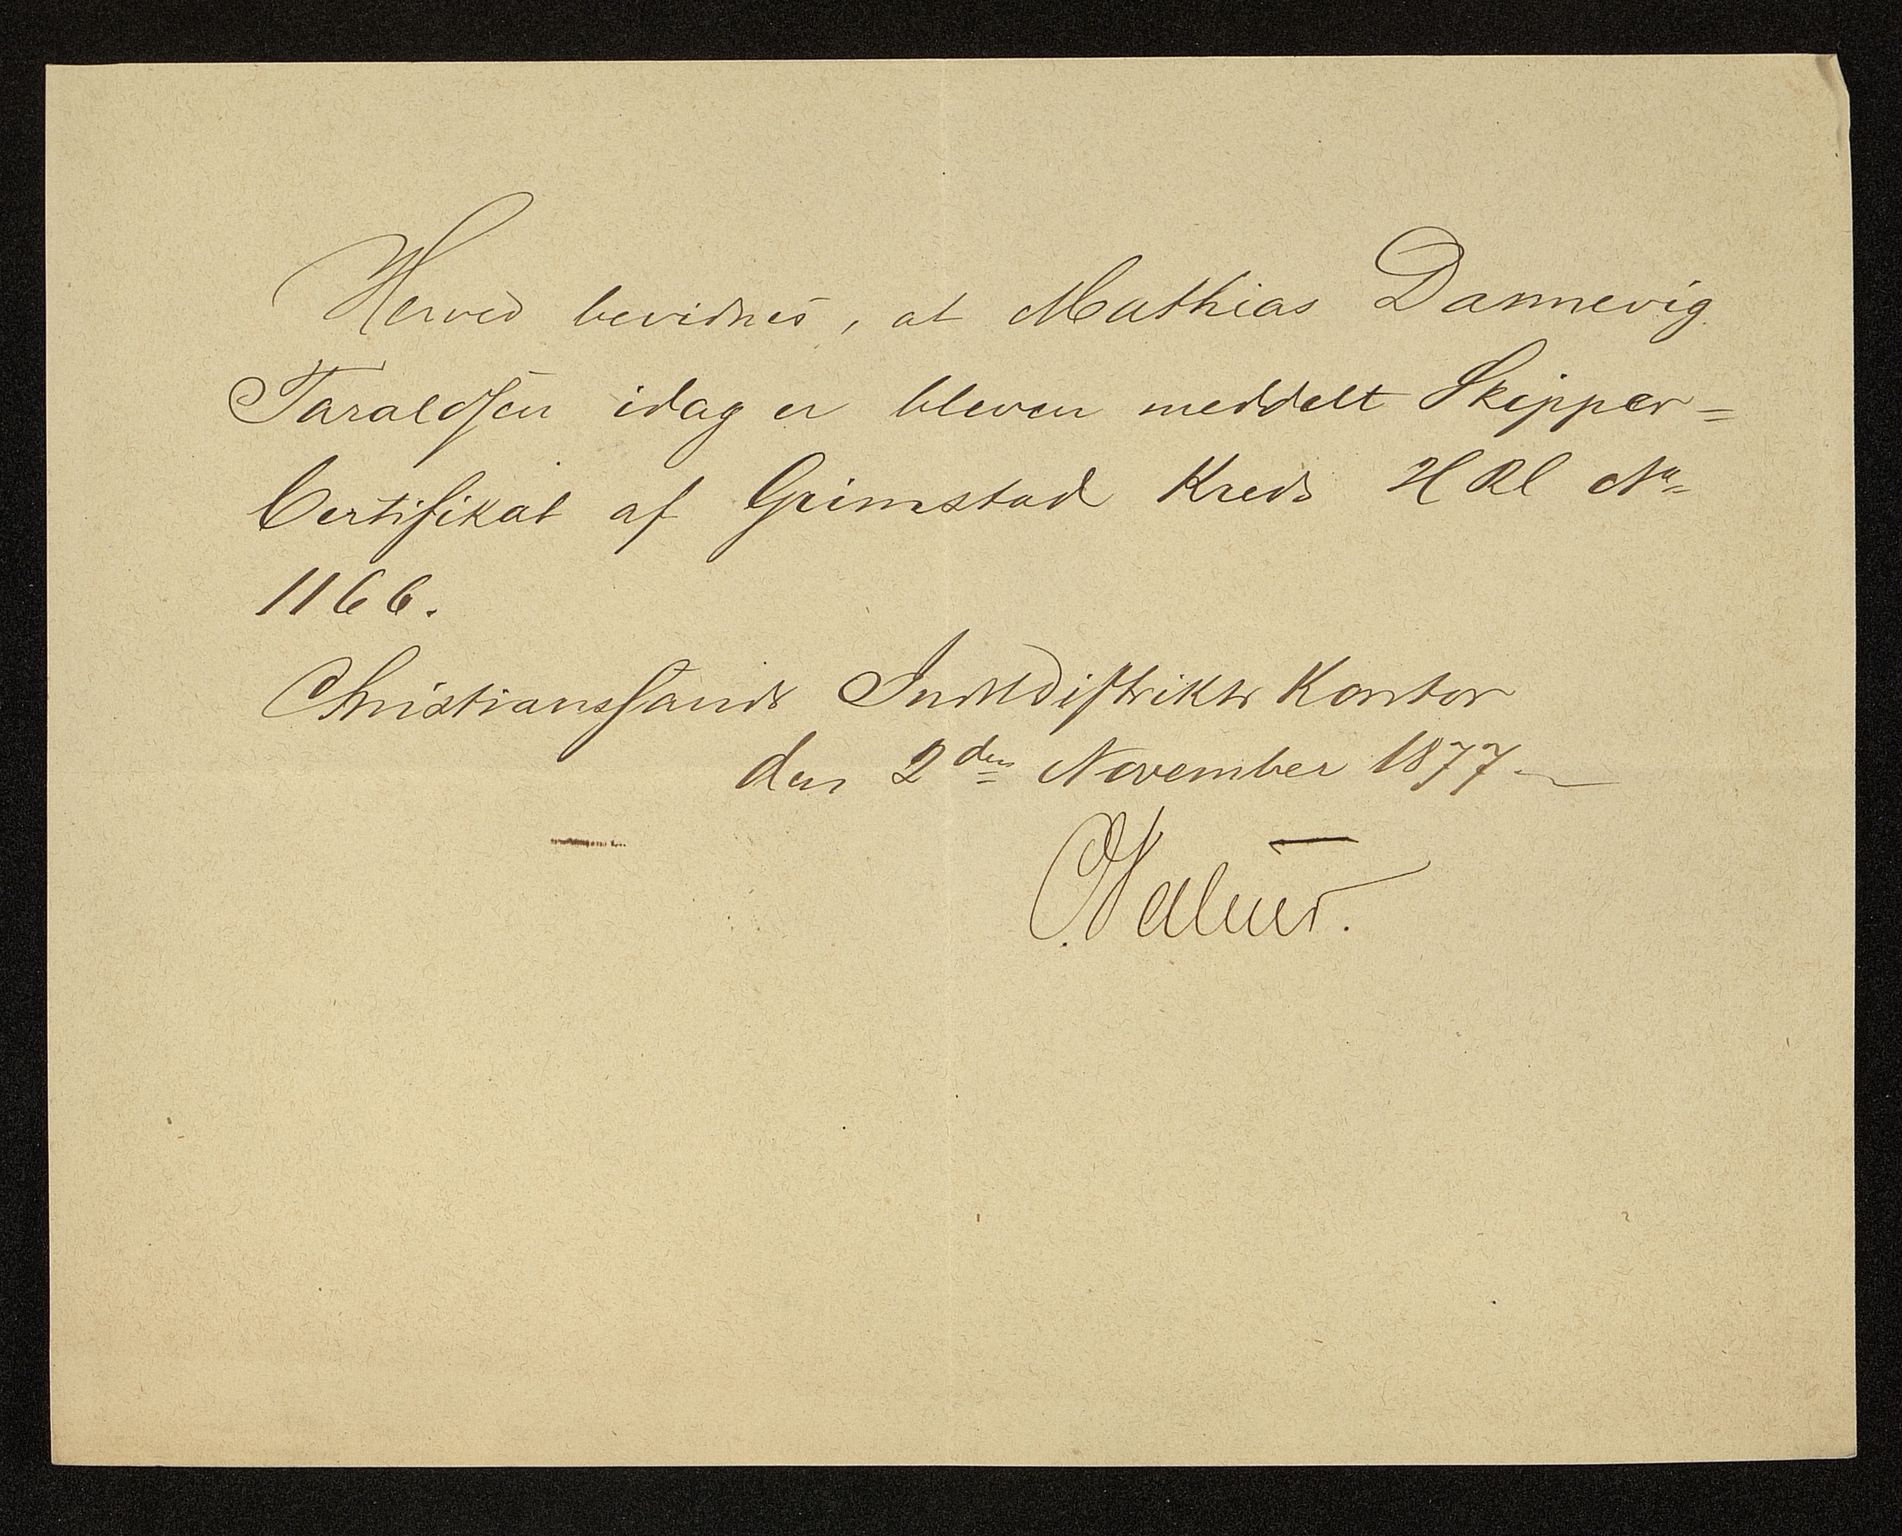 Herved bevidnes, at Mathias Dannevig
Taraldsen idag er bleven meddelt Skipper=
Certifikat af Grimstad Kreds H Rl No
1166.
Christianssands Indrldistrikts Kontor
den 2den November 1877